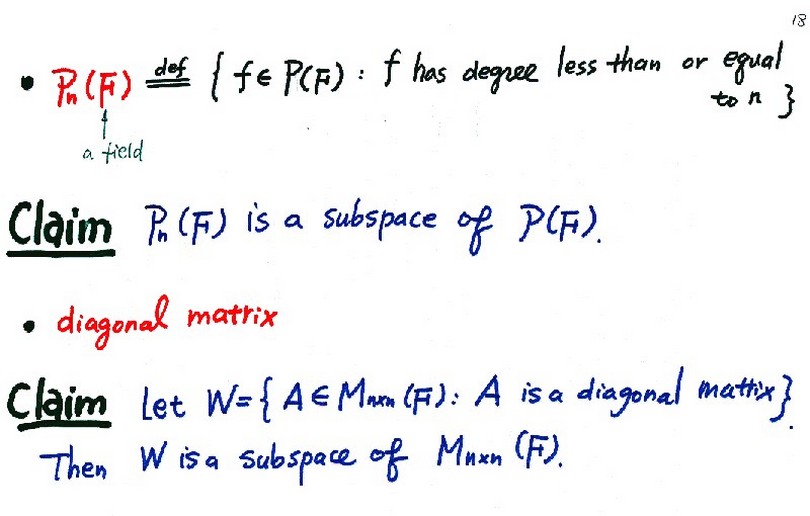 18
• Pn(F) def= { f ∈ P(F) : f has degree less than or equal
to n }
a field
Claim Pn(F) is a subspace of P(F).
• diagonal matrix
Claim Let W = { A ∈ Mn×n (F) : A is a diagonal mattix }.
Then W is a subspace of Mn×n (F).